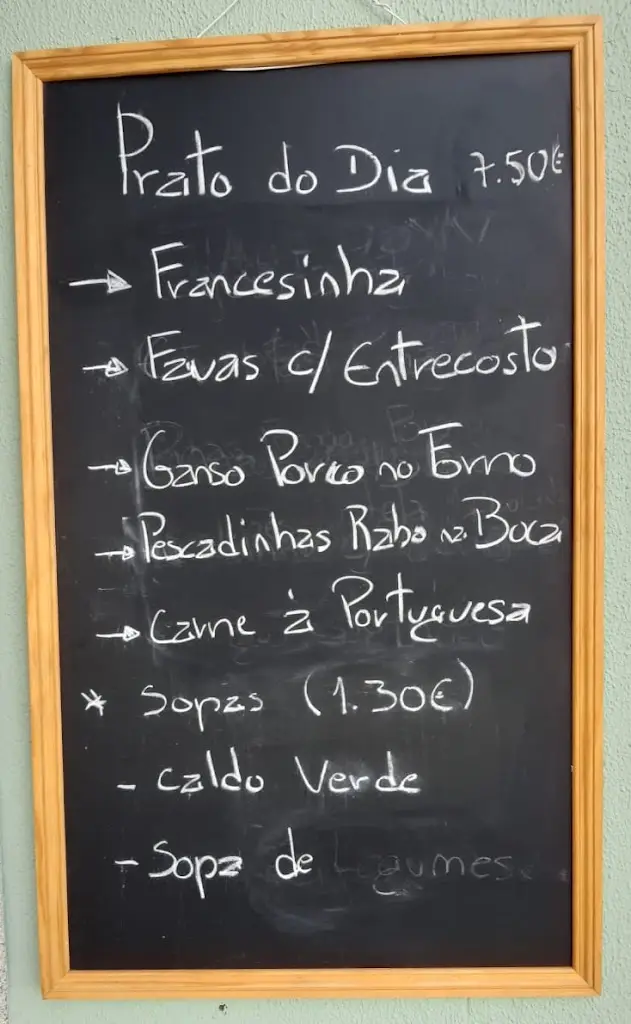 Prato do Dia 7.50€
→ Francesinha
→ Favas c/ Entrecosto
→ Ganso Porco no Forno
→ Pescadinhas Rabo na Boca
→ Carne à Portuguesa
* Sopas (1.30€)
- Caldo Verde
- Sopa de Legumes